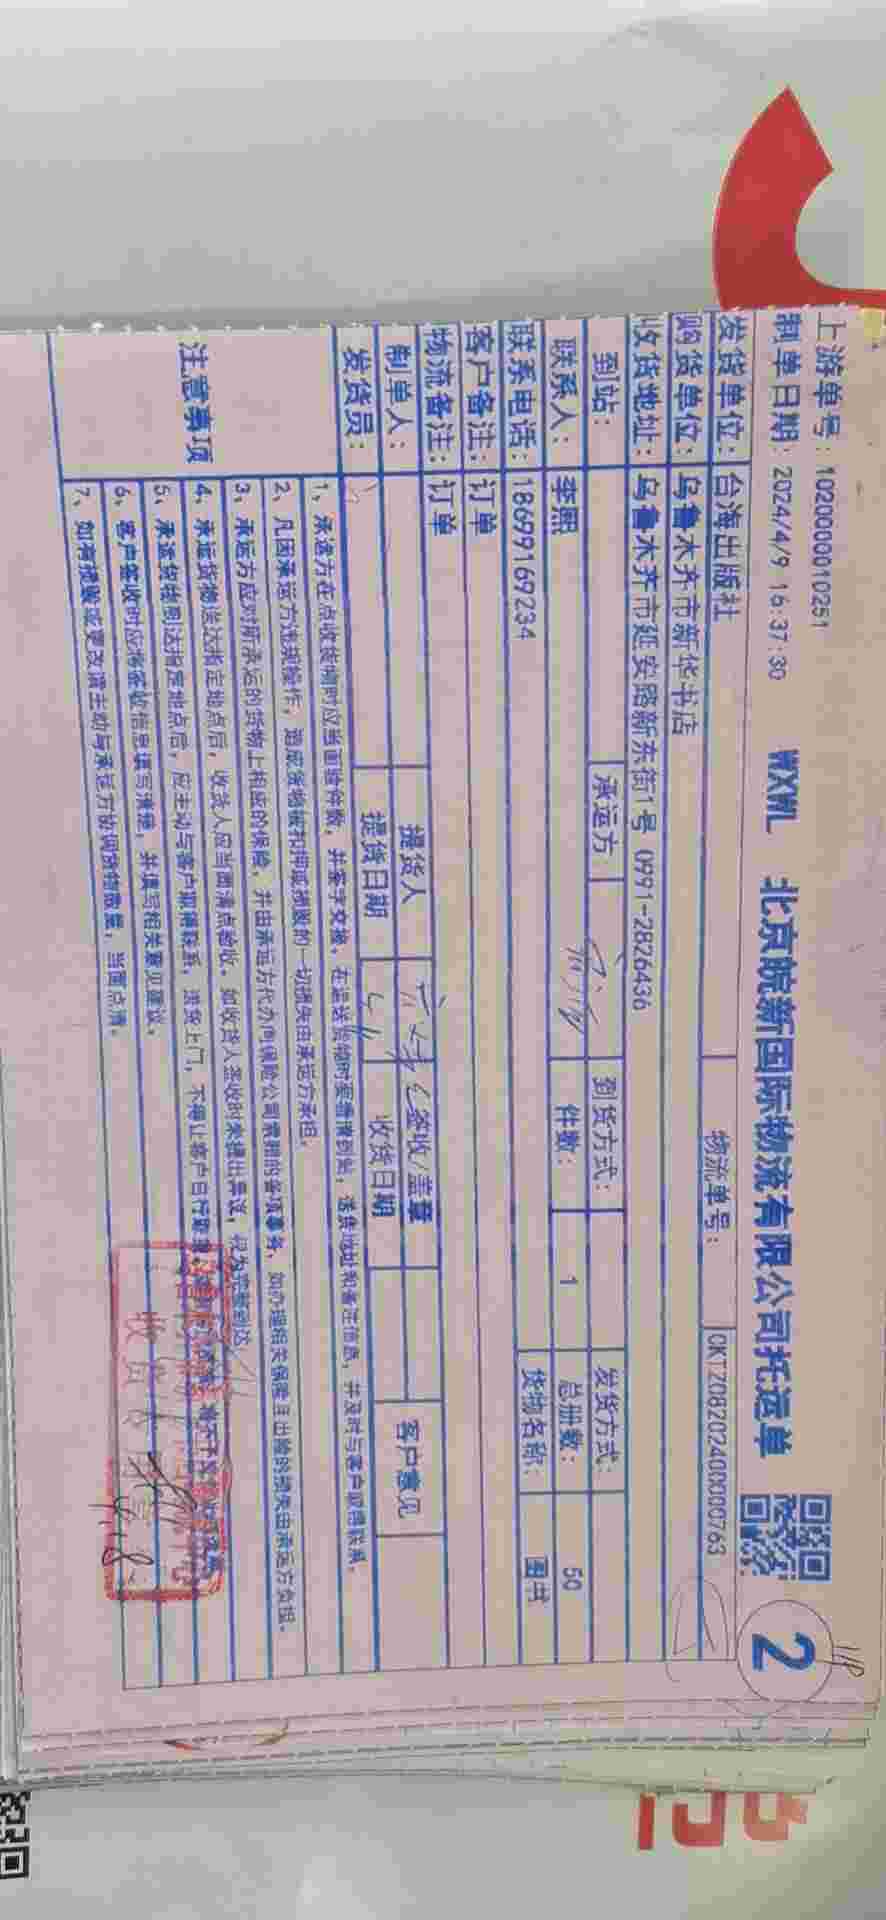 上游单号：102000010251
制单日期：2024/4/9 16:37:30
WXWL 北京皖新国际物流有限公司托运单
2
发货单位：台海出版社 物流单号：CKTZ0820240000763
购货单位：乌鲁木齐市新华书店
收货地址：乌鲁木齐市延安路新东街1号 0991-2826436
到站： 承运方 到货方式： 发货方式：
联系人：李熙 件数：1 总册数：50
联系电话：18699169234 货物名称：图书
客户备注：订单
物流备注：订单
制单人： 提货人 签收/盖章 客户意见
发货员： 提货日期 收货日期
注意事项
1、承运方在点收货物时应当面验件数，并签字交接，在运送货物时要看清到站，送货地址和备注信息，并及时与客户取得联系。
2、凡因承运方违规操作，造成货物被扣押或损毁的一切损失由承运方承担。
3、承运方应对所承运的货物上相应的保险，并由承运方代办向保险公司索赔的各项事务，如办理相关保险手
4、承运货物送达指定地点后，收货人应当面清点验收，如收货人签收时未提出异议，视为完整到达
5、承运货物到达指定地点后，应主动与客户取得联系，送货上门，不得让客户自行取货
6、客户签收时应将签收信息填写清楚，并填写相关意见建议。
7、如有损毁或更改请主动与承运方协调货物数量，当面点清。
收货专用章
4.18